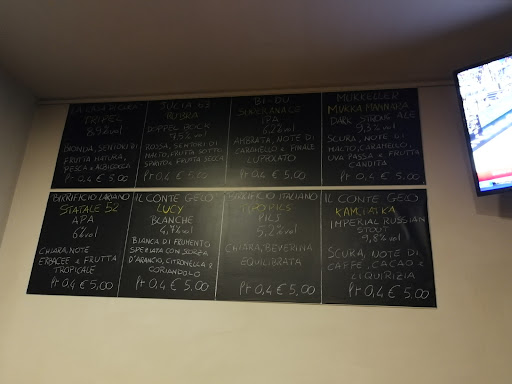 LA CASA DI CURA
TRIPEL
8,4% vol
BIONDA, SENTORI DI
FRUTTA MATURA,
PESCA E ALBICOCCA
Pr 0,4 € 5,00
JUCIA 63
RUBBIA
DOPPEL BOCK
7,5% vol
ROSSA, SENTORI DI
MALTO, FRUTTA SOTTO
SPIRITO, FRUTTA SECCA
Pr 0,4 € 5,00
BI-DU
IPA
6,2% vol
AMBRATA, NOTE DI
CARAMELLO E FINALE
LUPPOLATO
Pr 0,4 € 5,00
MIKKELLER
DARK STRONG ALE
9,3% vol
SCURA, NOTE DI
MALTO, CARAMELLO,
UVA PASSA E FRUTTA
CANDITA
Pr 0,4 € 5,00
BIRRIFICIO LARIANO
STATALE 52
APA
6% vol
CHIARA, NOTE
ERBACEE E FRUTTA
TROPICALE
Pr 0,4 € 5,00
IL CONTE GELO
LUCY
BLANCHE
4,7% vol
BIANCA DI FRUMENTO
SPEZIATA CON SCORZA
D'ARANCIO, CITRONELLA E
CORIANDOLO
Pr 0,4 € 5,00
BIRRIFICIO ITALIANO
PILS
5,2% vol
CHIARA, BEVERINA
EQUILIBRATA
Pr 0,4 € 5,00
IL CONTE GELO
KAMCIATKA
IMPERIAL RUSSIAN
STOUT
9,8% vol
SCURA, NOTE DI
CAFFE, CACAO E
LIQUIRIZIA
Pr 0,4 € 5,00